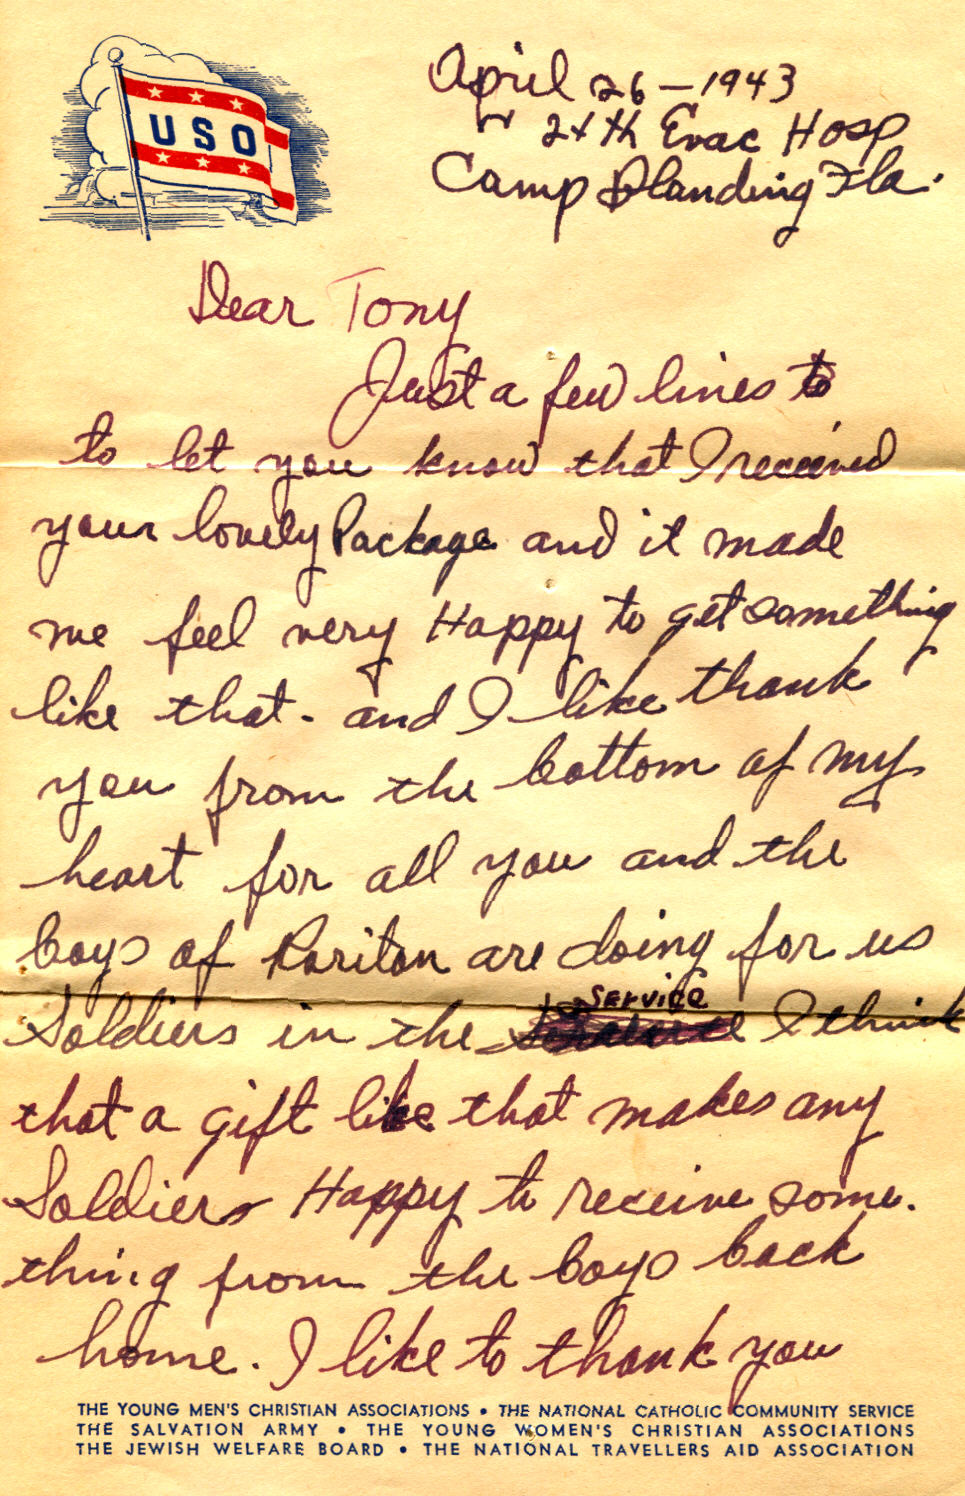 USO
April 26 - 1943
24th Evac Hosp
Camp Blanding Fla.
Dear Tony
Just a few lines to
to let you know that I received
your lovely Package and it made
me feel very Happy to get something
like that - and I like thank
you from the bottom of my
heart for all you and the
boys of Raritan are doing for us
Soldiers in the Service I think
that a gift like that makes any
Soldiers Happy to receive some.
thing from the boys back
home. I like to thank you
THE YOUNG MEN'S CHRISTIAN ASSOCIATIONS • THE NATIONAL CATHOLIC COMMUNITY SERVICE
THE SALVATION ARMY • THE YOUNG WOMEN'S CHRISTIAN ASSOCIATIONS
THE JEWISH WELFARE BOARD • THE NATIONAL TRAVELLERS AID ASSOCIATION